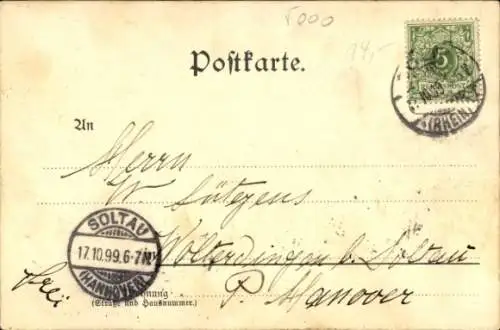 5000
14,-
Postkarte.
5
10.99
(RHEIN)
An
Herrn
W. Lütgens
Wolterdingen b. Soltau
P. Hanover
SOLTAU
17.10.99. 6-7N.
(HANNOVER)
frei
(Straße und Hausnummer.)